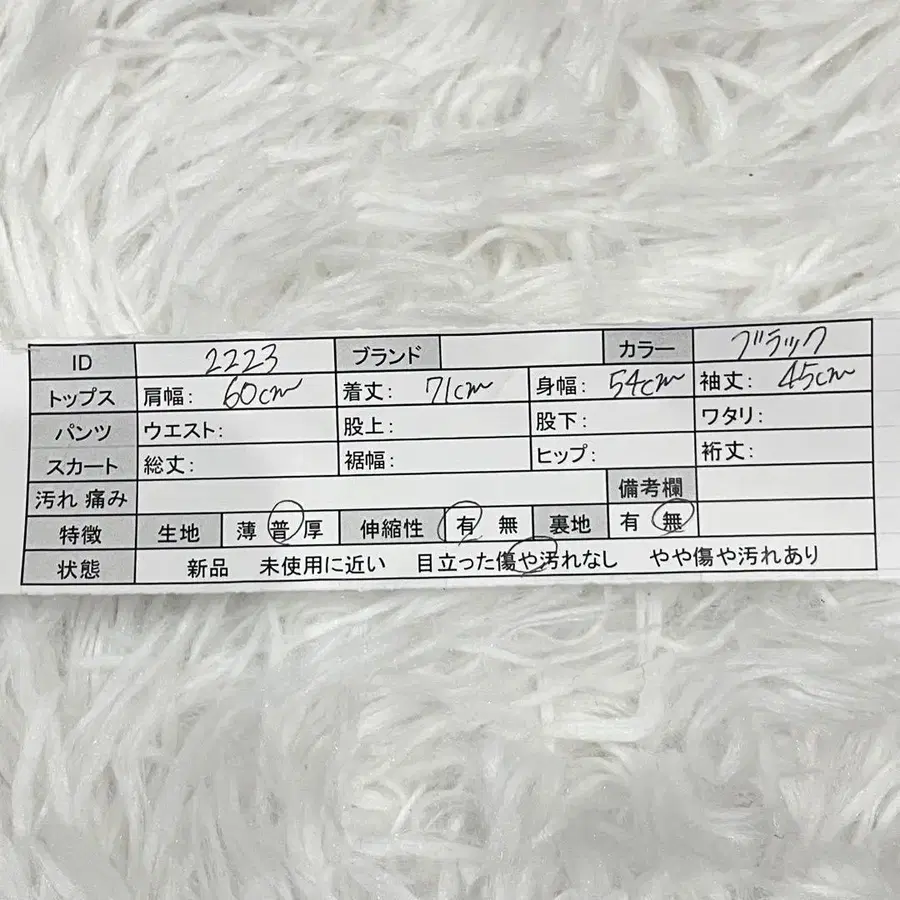 ID 2223 ブランド カラー ブラック
トップス 肩幅: 60cm 着丈: 71cm 身幅: 54cm 袖丈: 45cm
パンツ ウエスト: 股上: 股下: ワタリ:
スカート 総丈: 裾幅: ヒップ: 裄丈:
汚れ 痛み 備考欄
特徴 生地 薄 普 厚 伸縮性 有 無 裏地 有 無
状態 新品 未使用に近い 目立った傷や汚れなし やや傷や汚れあり